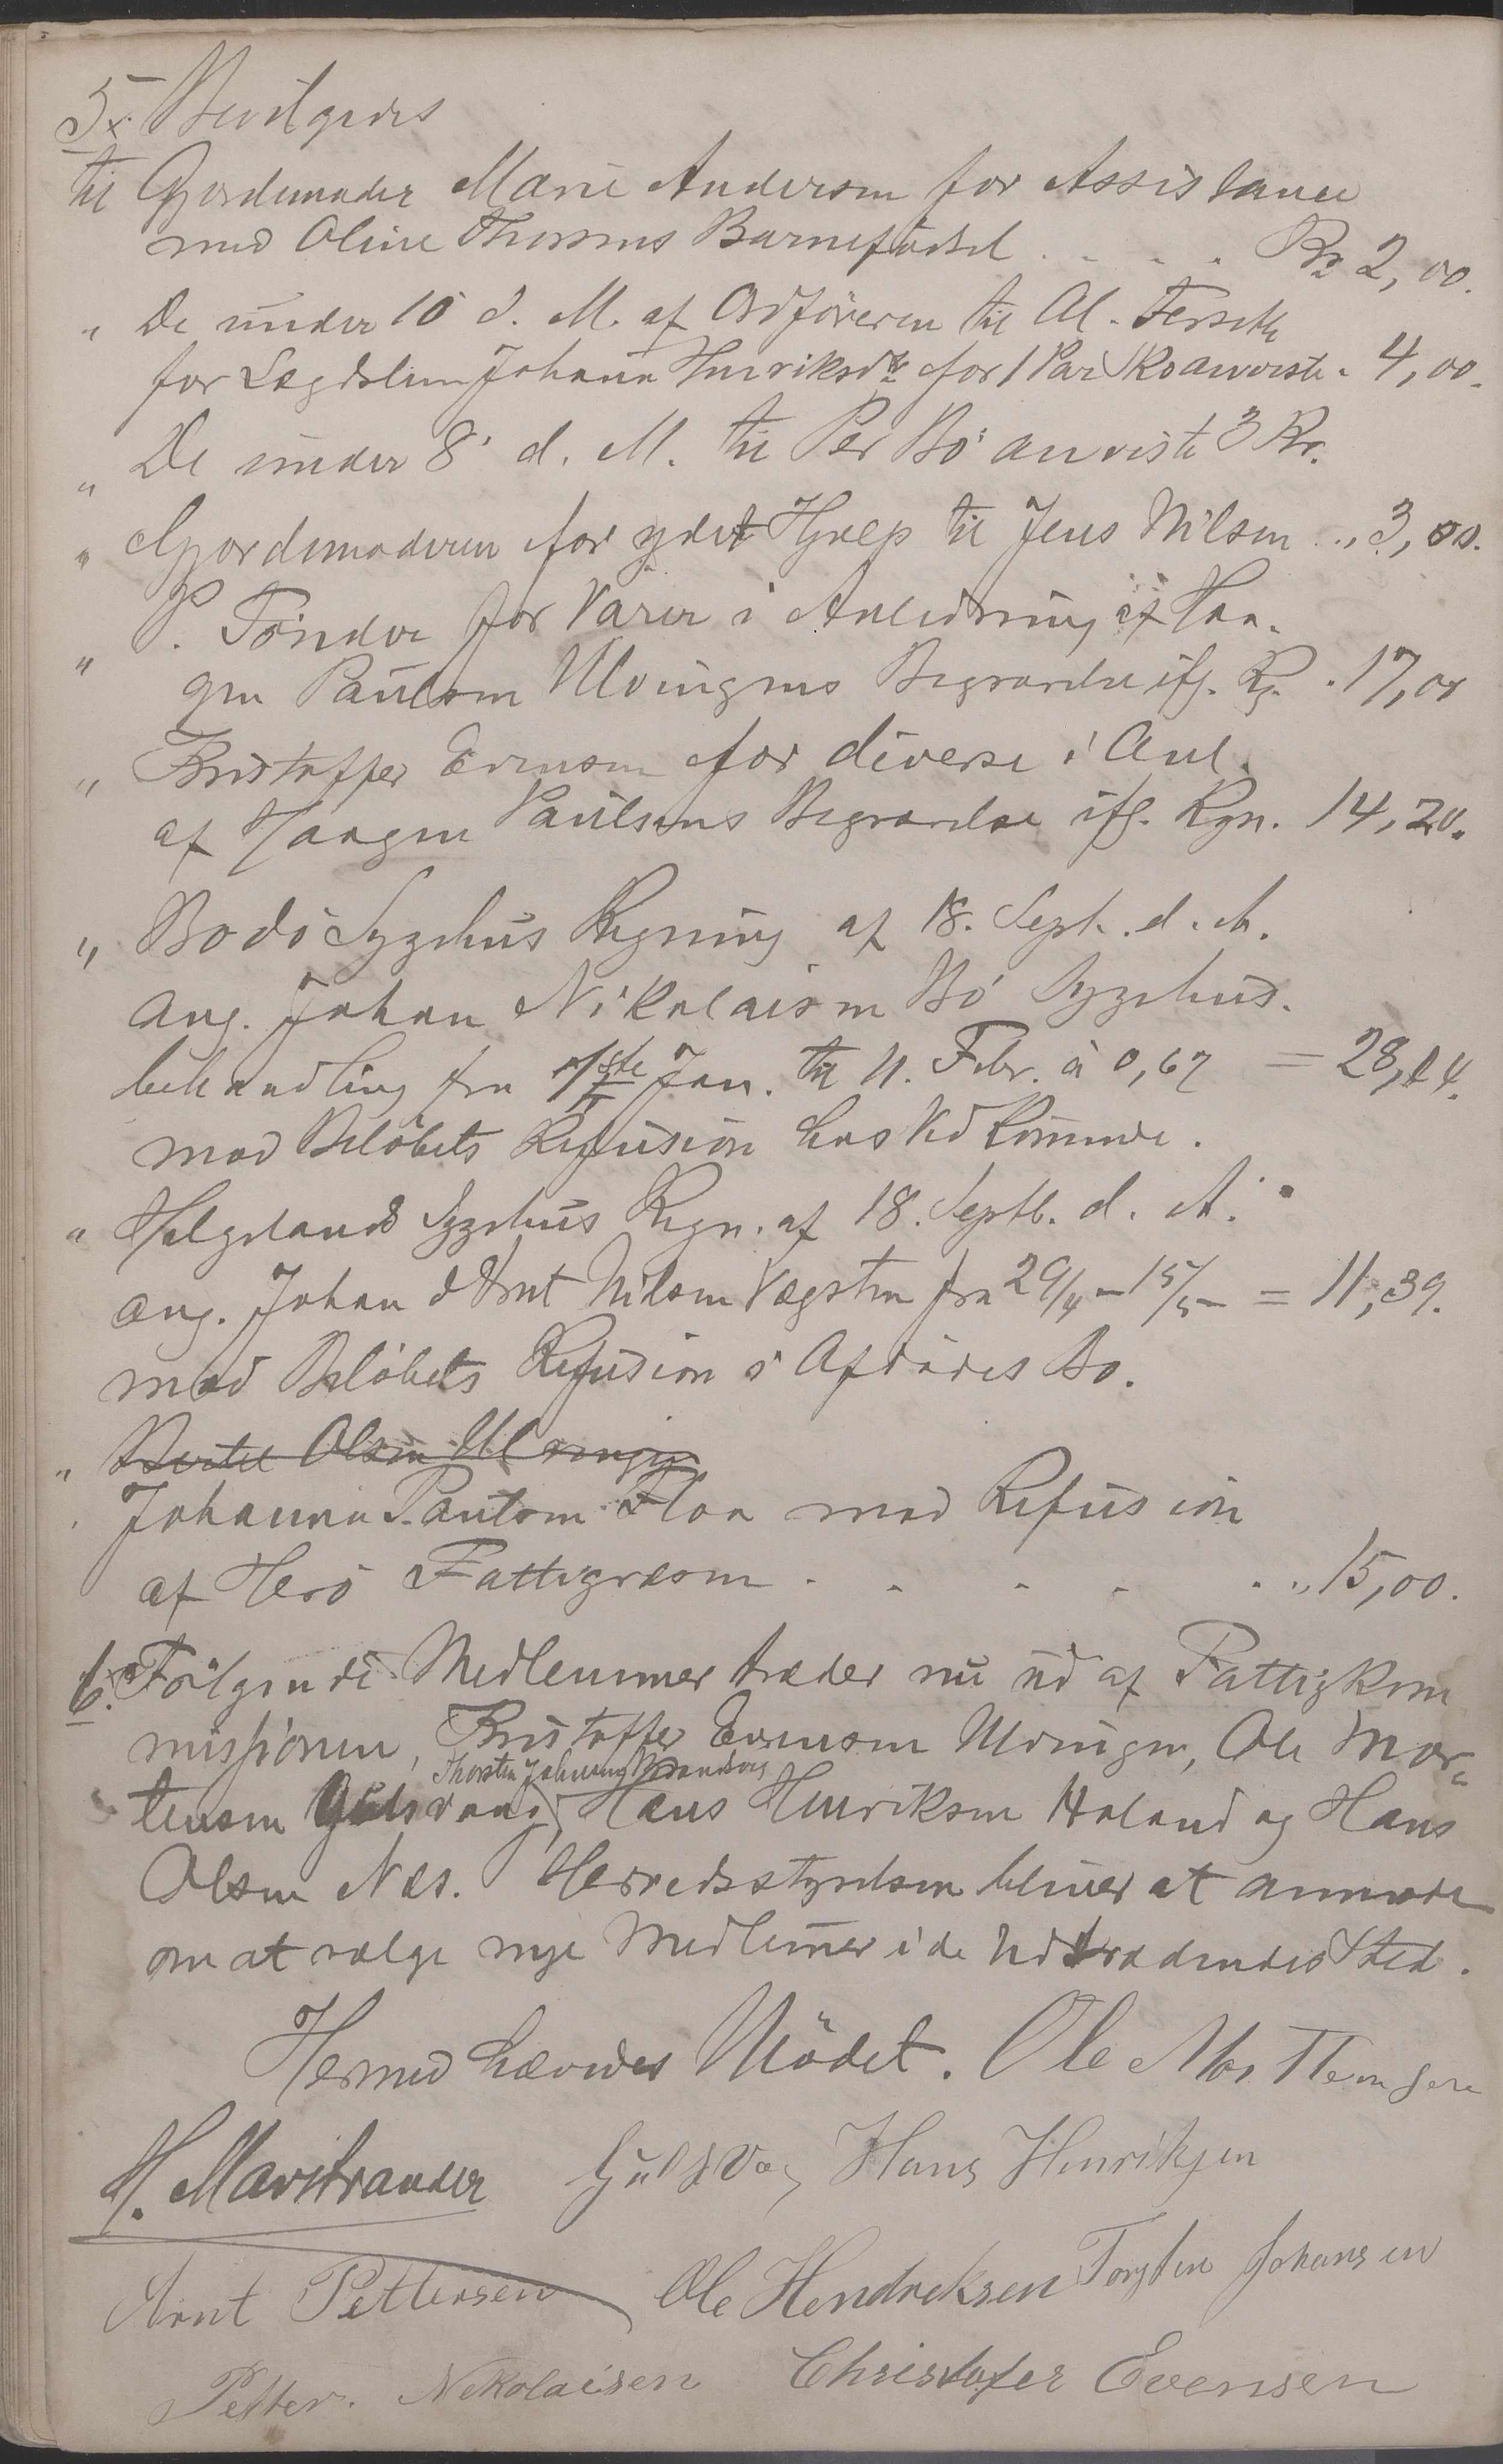 5. Bevilgedes
til Gjordemoder Marie Andersen for Assistance
med Oline Thomsens Barnefødsel . . . . Kr 2,00.
" De under 10 d. M. af Ordføreren til Al.
for Lægdslem Johann Henriksdtr for 1 Par Sko anviste " 4,00.
" De under 8' d. M. til Per Bø anviste 3 Kr.
" Gjordemoderen for ydet Hjælp til Jens Nilsen .. 3,00.
" P. Tønder for Varer i Anledning af Haa-
gen Paulsen Ulvingens Begravelse ifg. Rg. . 17,00
" Kristoffer Evensen for diverse i Anl.
af Haagen Paulsens Begravelse ifg. Rgn. 14,20.
" Bodø Sygehus Regning af 18. Sept. d. A.
ang. Johan Nikolaisen Bø Sygehus-
behandling fra 1ste Jan. til 11. Febr. à 0,67 = 28,14.
mod Beløbets Refusion hos Vedkommende.
" Helgelands Sygehus Regn. af 18. Septb. d. A.
ang. Johan Arnt Nilsen Vægsten fra 29/4 - 15/5 - = 11,39.
mod Beløbets Refusion i Afdødes Bo.
" Bertel Olsen Ulvingen
" Johannes Paulsen Floa mod Refusion
af Herø Fattigvæsen . . . . . „ 15,00.
6. Følgende Medlemmer træder nu ud af Fattigkom
missionen, Kristoffer Evensen Ulvingen, Ole Mor-
Thorsten Johansen Brandsvig
tensen Gulsvaag, Hans Henriksen Haland og Hans
Olsen Næs. Herredsstyrelsen bliver at anmode
om at vælge nye Medlemmer i de Udtrædendes Sted.
Hermed hævedes Mødet. Ole Morttensen
H. Marstrander Gulsvag Hans Henriksen
Arnt Pettersen Ole Hendreksen Torsten Johansen
Petter. Nekolaisen Christofer Evensen